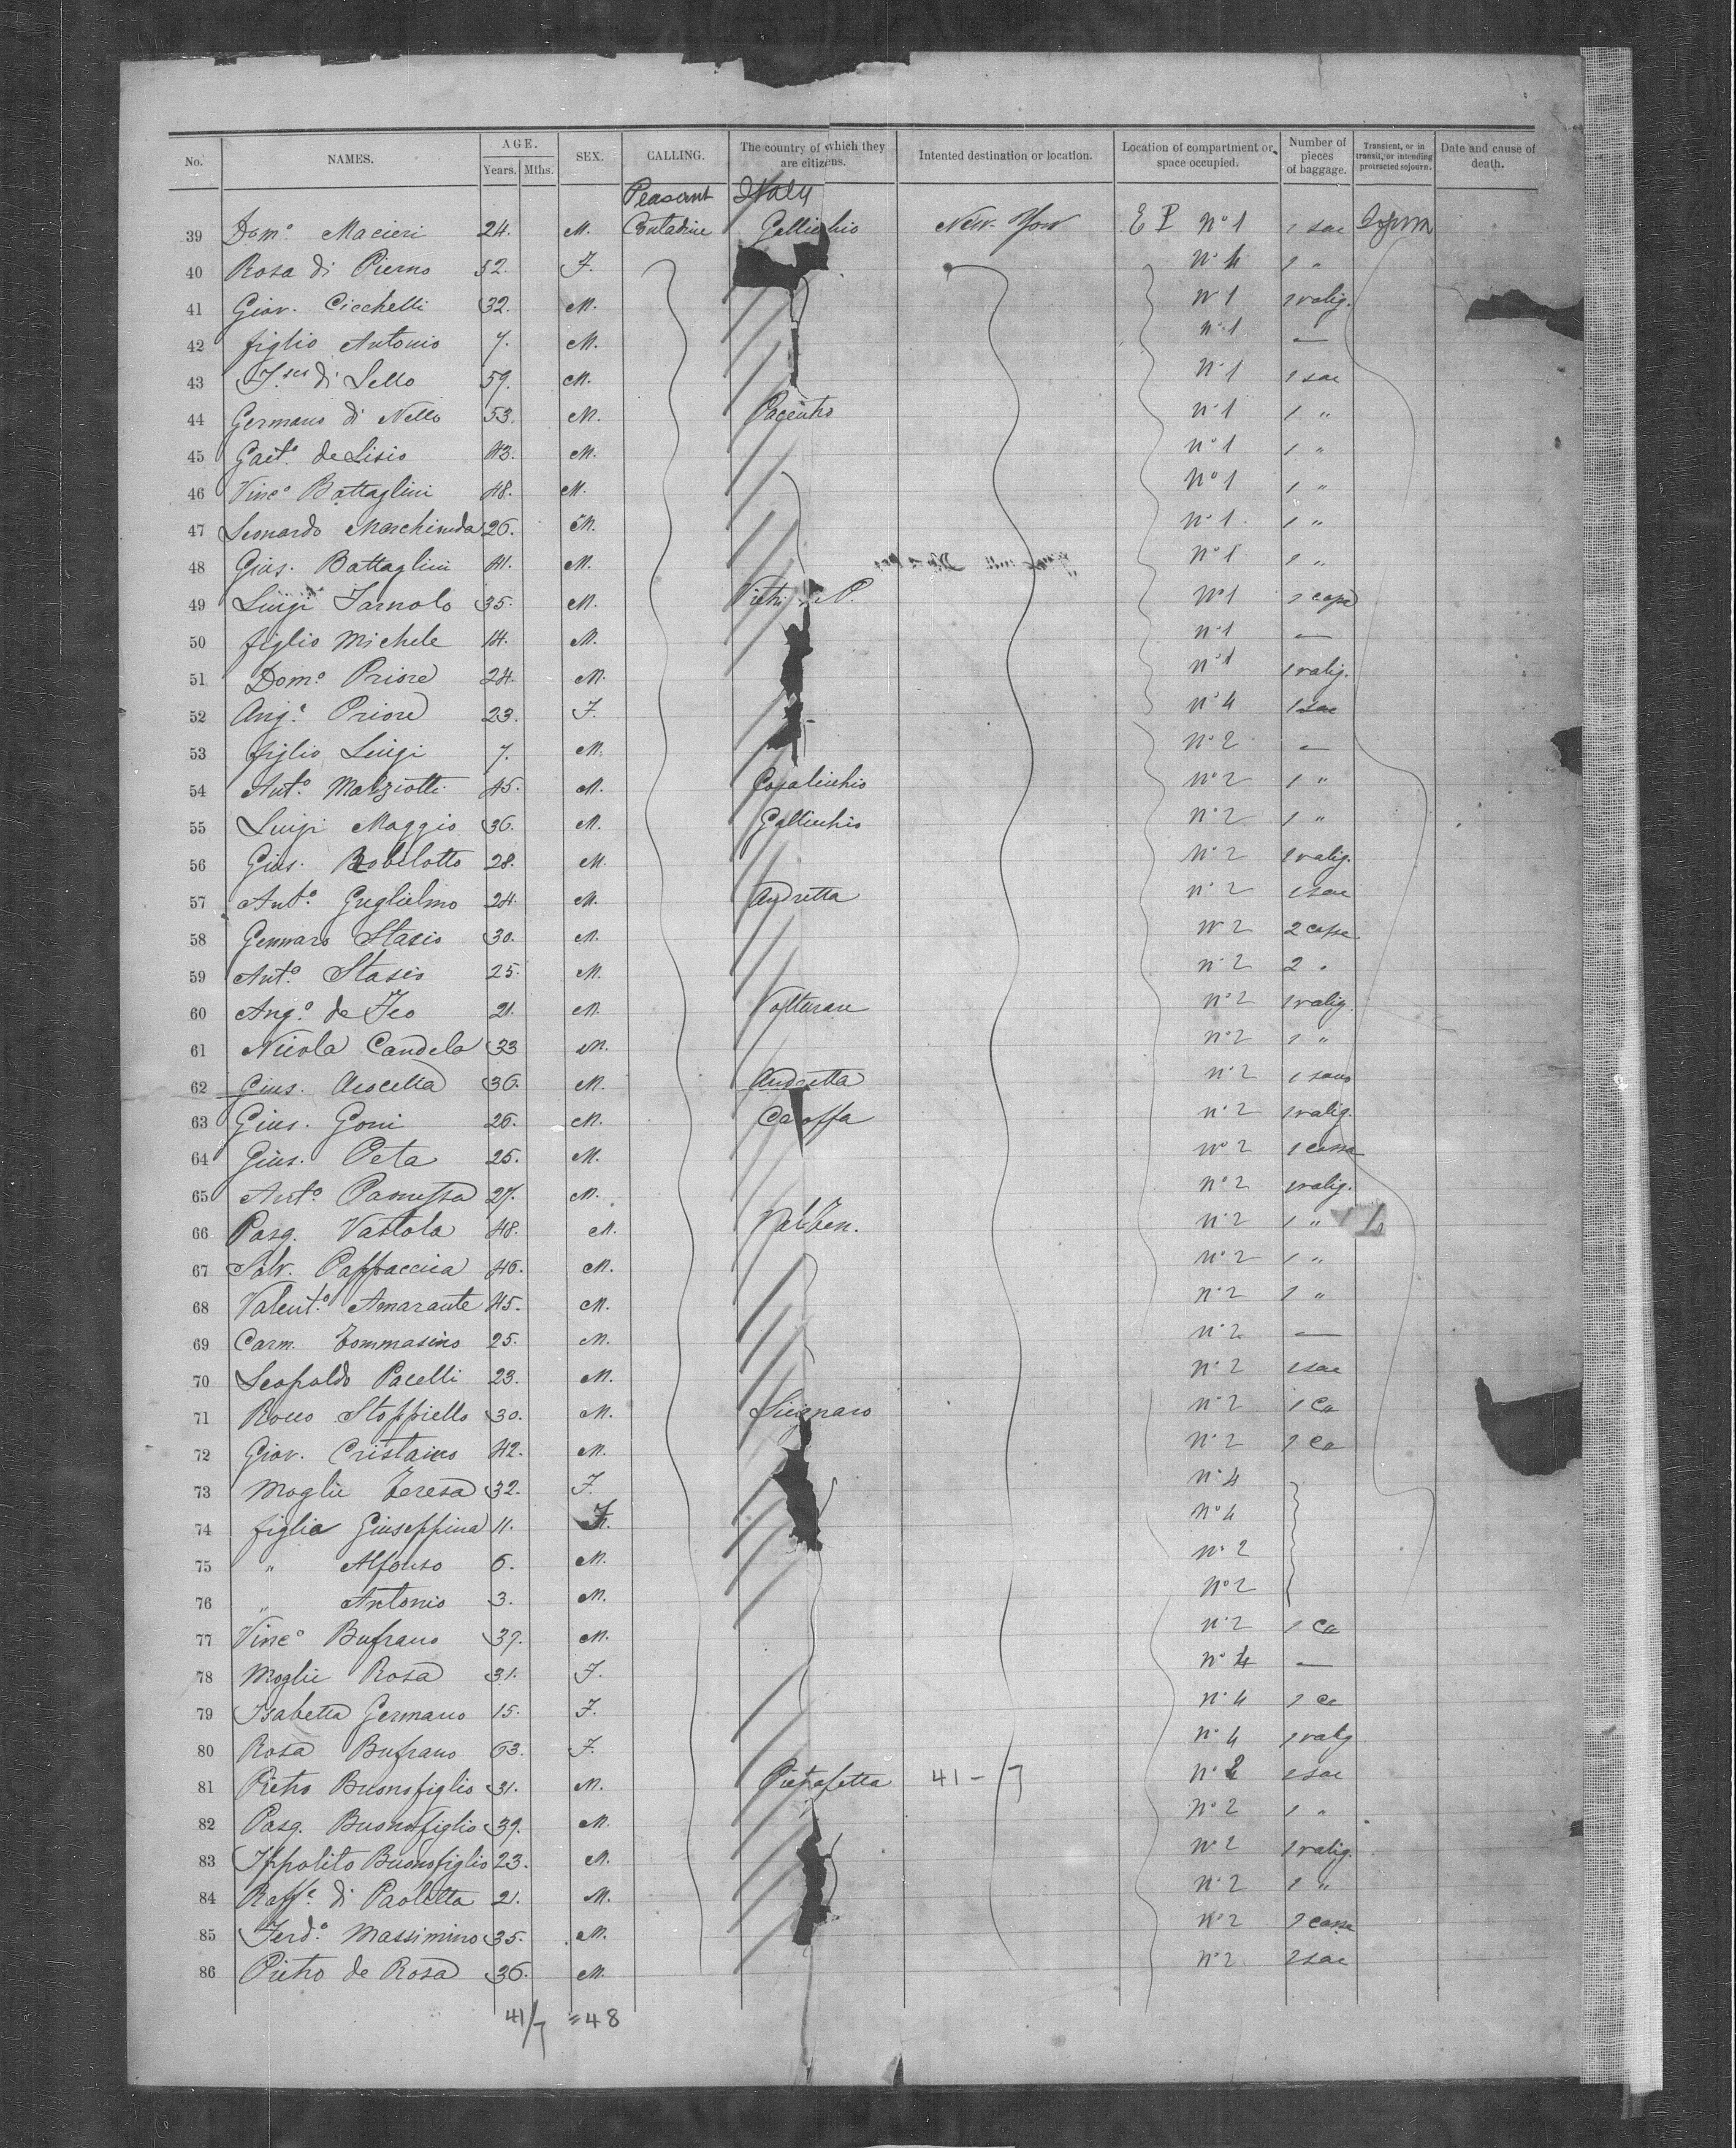 No. NAMES. AGE. Years. Mths. SEX. CALLING. The country of which they are citizens. Intented destination or location. Location of compartment or space occupied. Number of pieces of baggage. Transient, or in transit, or intending protracted sojourn. Date and cause of death.
Peasant Italy
39 Dom.o Macieri 24. M. Contadine Gallicchio New-York E P No 1 1 sac
40 Rosa di Pierno 52. F. No 4 1 "
41 Giov. Cicchelli 32. M. No 1 1 valig.
42 figlio Antonio 7. M. No 1 —
43 F.sco di Lello 59. M. No 1 1 sac
44 Germano di Nello 53. M. Pacentro No 1 1 "
45 Gaet.o de Lisio 43. M. No 1 1 "
46 Vinc.o Battaglini 48. M. No 1 1 "
47 Leonardo 26. M. No 1 1 "
48 Gius. Battaglini 41. M. No 1 1 "
49 Luigi Iarnolo 35. M. Vietri P. No 1 1
50 figlio Michele 14. M. No 1 —
51 Dom.o Priore 24. M. No 1 1 valig.
52 Ang.a Priore 23. F. No 4 1 sac
53 figlio Luigi 7. M. No 2 —
54 Ant.o Marziotti 45. M. No 2 1 "
55 Luigi Maggio 36. M. Gallicchio No 2 1 "
56 Gius. Robilotto 28. M. No 2 1 valig.
57 Ant.o Guglielmo 24. M. Andretta No 2 1 sac
58 Gennaro Stasio 30. M. No 2 2 casse
59 Ant.o Stasio 25. M. No 2 2 "
60 Ang.o de Feo 21. M. Volturara No 2 1 valig.
61 Nicola Candela 33 M. No 2 1 "
62 Gius. Acocella 36. M. Andretta No 2 1 sacco
63 Gius. Goni 26. M. Caraffa No 2 1 valig.
64 Gius. Peta 25. M. No 2 1 cassa
65 Ant.o 27. M. No 2 1 valig.
66 Pasq. Vastola 48. M. No 2 1 "
67 Salv. Pappaccia 46. M. No 2 1 "
68 Valent.o Amarante 45. M. No 2 1 "
69 Carm. Tommasino 25. M. No 2 —
70 Leopoldo Pacelli 23. M. No 2 1 sac
71 Rocco Stoppiello 30. M. Sicignano No 2 1 Ca
72 Giov. Cristaino 42. M. No 2 1 Ca
73 Moglie Teresa 32. F. No 4
74 figlia Giuseppina 11. F. No 4
75 " Alfonso 6. M. No 2
76 " Antonio 3. M. No 2
77 Vinc.o Bufrano 37. M. No 2 1 Ca
78 Moglie Rosa 31. F. No 4 —
79 Isabetta Germano 15. F. No 4 1 Ca
80 Rosa Bufrano 63. F. No 4 1 valig
81 Pietro Buonofiglio 31. M. Pietrafitta 41 - 7 No 2 1 sac
82 Pasq. Buonofiglio 39. M. No 2 1 "
83 Ippolito Buonofiglio 23. M. No 2 1 valig.
84 Raff.e di Paoletta 21. M. No 2 1 "
85 Ferd.o Massimino 35. M. No 2 1 cassa
86 Pietro de Rosa 36. M. No 2 2 sac
41/7 = 48